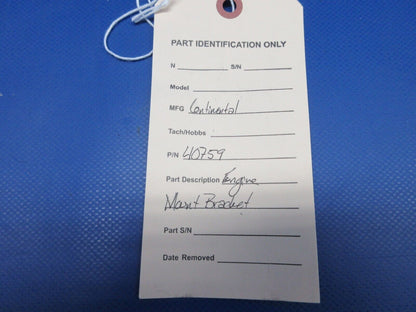 PART IDENTIFICATION ONLY
N S/N
Model
MFG Continental
Tach/Hobbs
P/N 40759
Part Description Engine
Mount Bracket
Part S/N
Date Removed